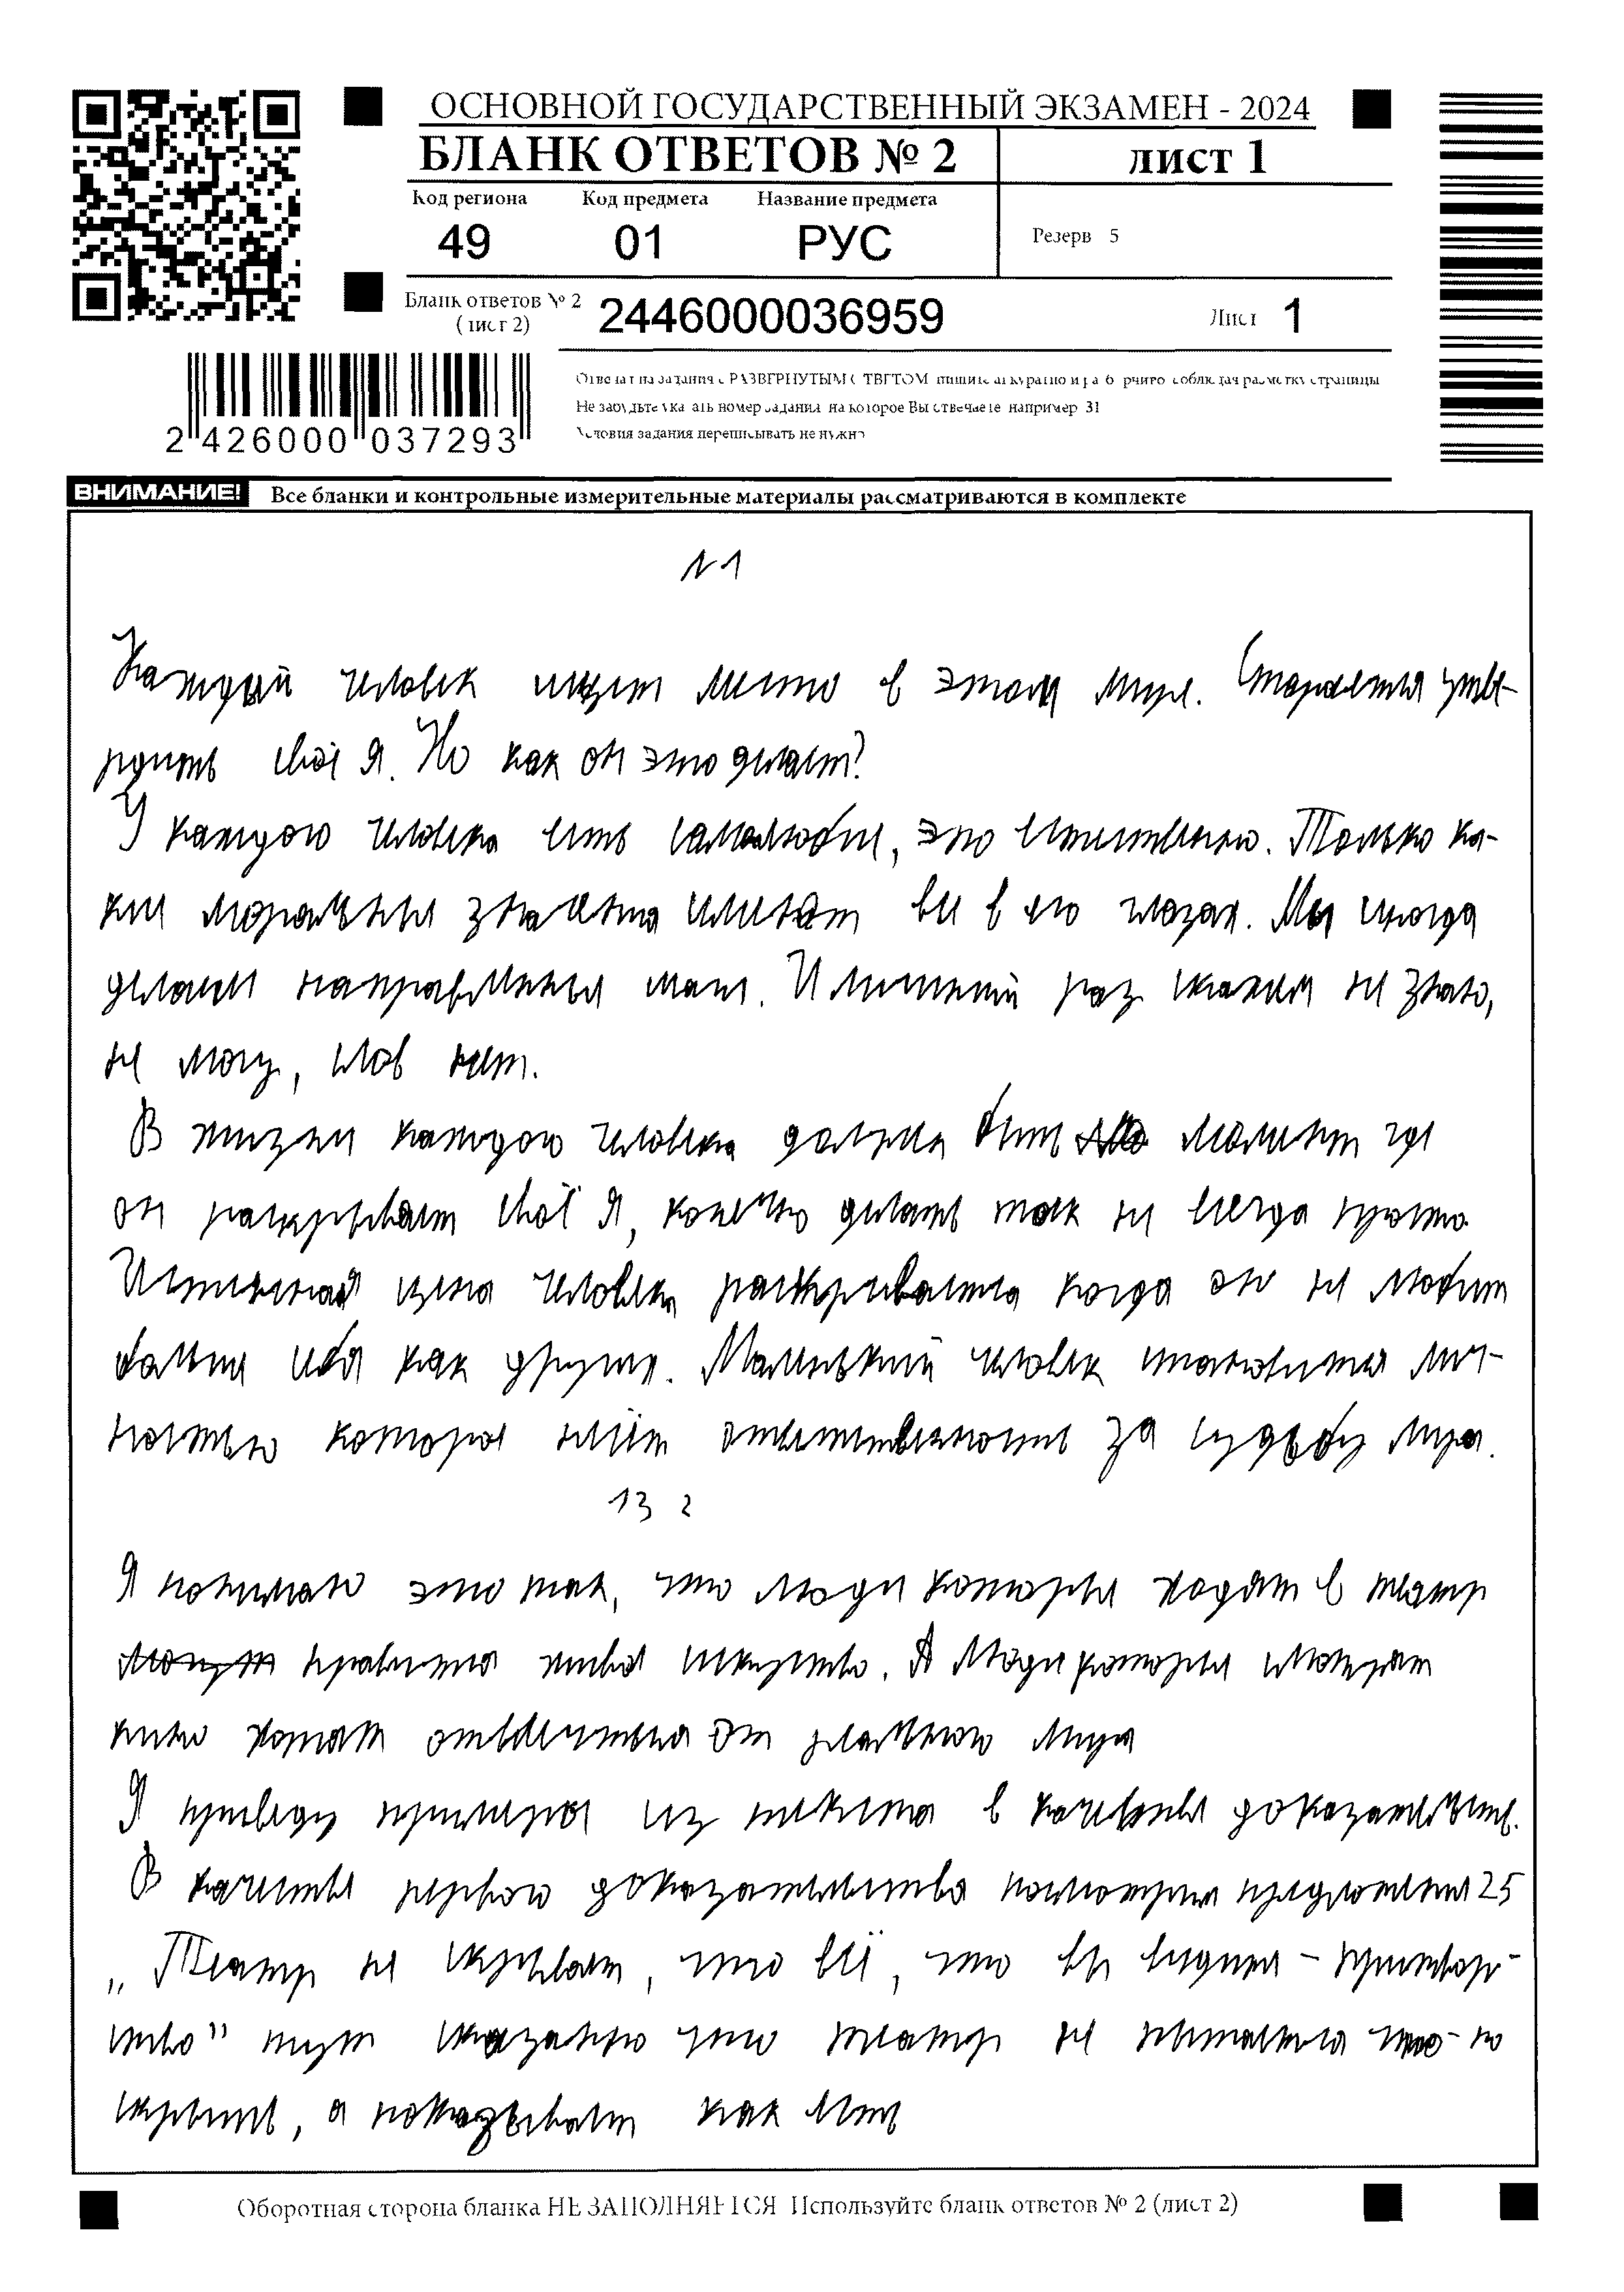 ОСНОВНОЙ ГОСУДАРСТВЕННЫЙ ЭКЗАМЕН - 2024
БЛАНК ОТВЕТОВ № 2
лист 1
Код региона
Код предмета
Название предмета
49
01
РУС
Резерв 5
Бланк ответов № 2
(лист 2)
2446000036959
Лист 1
2 426000 037293
Отвечая на задания с РАЗВЕРНУТЫМ ОТВЕТОМ, пишите аккуратно и разборчиво, соблюдая разметку страницы
Не забудьте указать номер задания, на которое Вы отвечаете, например 31
Условия задания переписывать не нужно
ВНИМАНИЕ!
Все бланки и контрольные измерительные материалы рассматриваются в комплекте
N 1
Каждый человек ищет место в этом мире. Старается утве-
рдить своё Я. Но как он это делает?
У каждого человека есть самолюбие, это естественно. Только ка-
кие моральные имеет всё в его глазах. Мы иногда
делаем неправильные шаги. И лишний раз скажем не знаю,
не могу, слов нет.
В жизни каждого человека должен быть момент где
он раскрывает своё Я, конечно делать так не всегда просто
Истинная цена человека раскрывается когда он не любит
больше себя как других. Маленький человек становится лич-
ностью которая несёт ответственность за судьбу мира.
13 2
Я понимаю это так, что люди которые ходят в театр
нравится живое искусство. А люди которые смотрят
кино хотят отвлечься от реального мира
Я приведу примеры из текста в качестве доказательств.
В качестве первого доказательства посмотрим предложения 25
„Театр не скрывает, что всё, что вы видите - притвор-
ство" тут сказанно что театр не пытается что-то
скрыть, а показывает как есть
Оборотная сторона бланка НЕ ЗАПОЛНЯЕТСЯ. Используйте бланк ответов № 2 (лист 2)